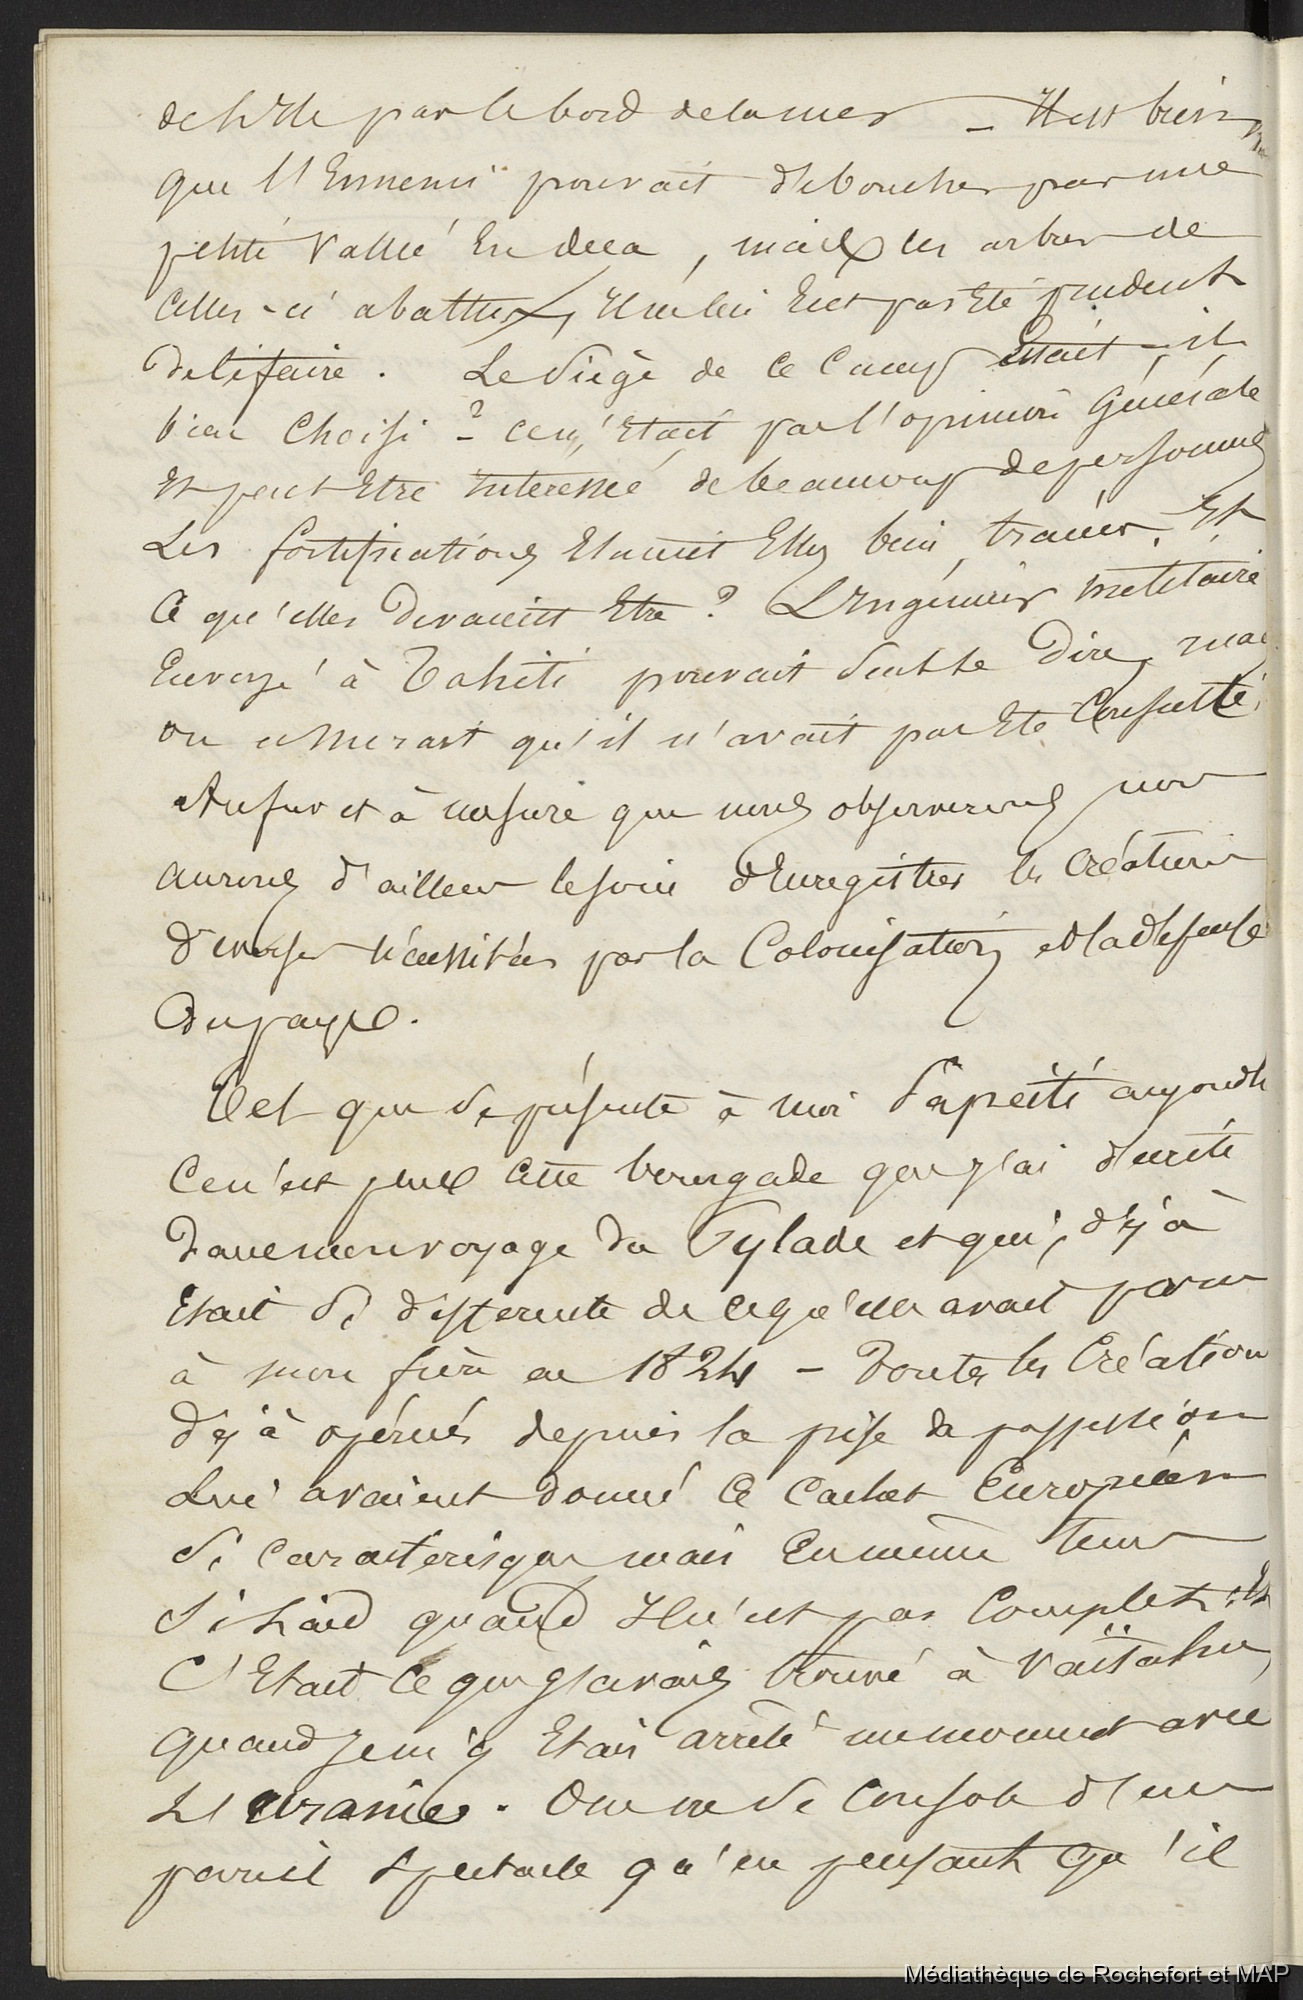 de l'Ile par le bord de la mer — Il est bien
que l'Ennemi pouvait déboucher par une
petite Vallée En deca, mais les arbres de
Celles-ci abattus, Il ne lui Eut pas Eté prudent
de le faire. Le Siège de ce Camp Etait-il
bien Choisi ? — ce n'Etait pas l'opinion Générale
Et peut Etre interessée de beaucoup de personnes
Les fortifications Etaient Elles bien tracées, Et
Ce qu'elles devaient Etre ? L'Ingénieur militaire
Envoyé à Tahiti pouvait seul le dire, mais
on m'assurait qu'il n'avait pas Eté Consulté.
Au fur et à mesure que nous observerons nous
aurons d'ailleurs le soin d'Enregistrer les Créations
diverses nécessitées par la Colonisation et la defense
du pays.
Tel que se présente à moi Papeïti aujourd'h
Ce n'est plus Cette bourgade que j'ai décrite
dans mon voyage du Pylade et qui, déjà
Etait si differente de ce qu'elle avait paru
à mon frère en 1824 — Toutes les Création
déjà opérées depuis la prise de possession
Lui avaient donné Ce Cachet Européen
Si Caracterisque mais En même tems
Si Laid quand Il n'est pas Complet. Et
C'Etait Ce que j'avais trouvé à Vaïtahu,
quand Je m'y Etais arrêté un moment avec
L'Uranie. On ne se Console d'un
pareil Spectacle qu'en pensant qu'il
Médiathèque de Rochefort et MAP